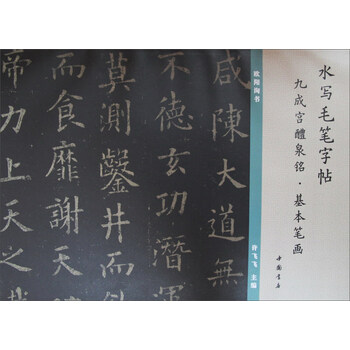 水写毛笔字帖
九成宫醴泉铭·基本笔画
中国书店
欧阳询书
飞飞 主编
咸陳大道無
不德玄功潛運
莫測鑿井而
而食靡謝天
帝力上天之